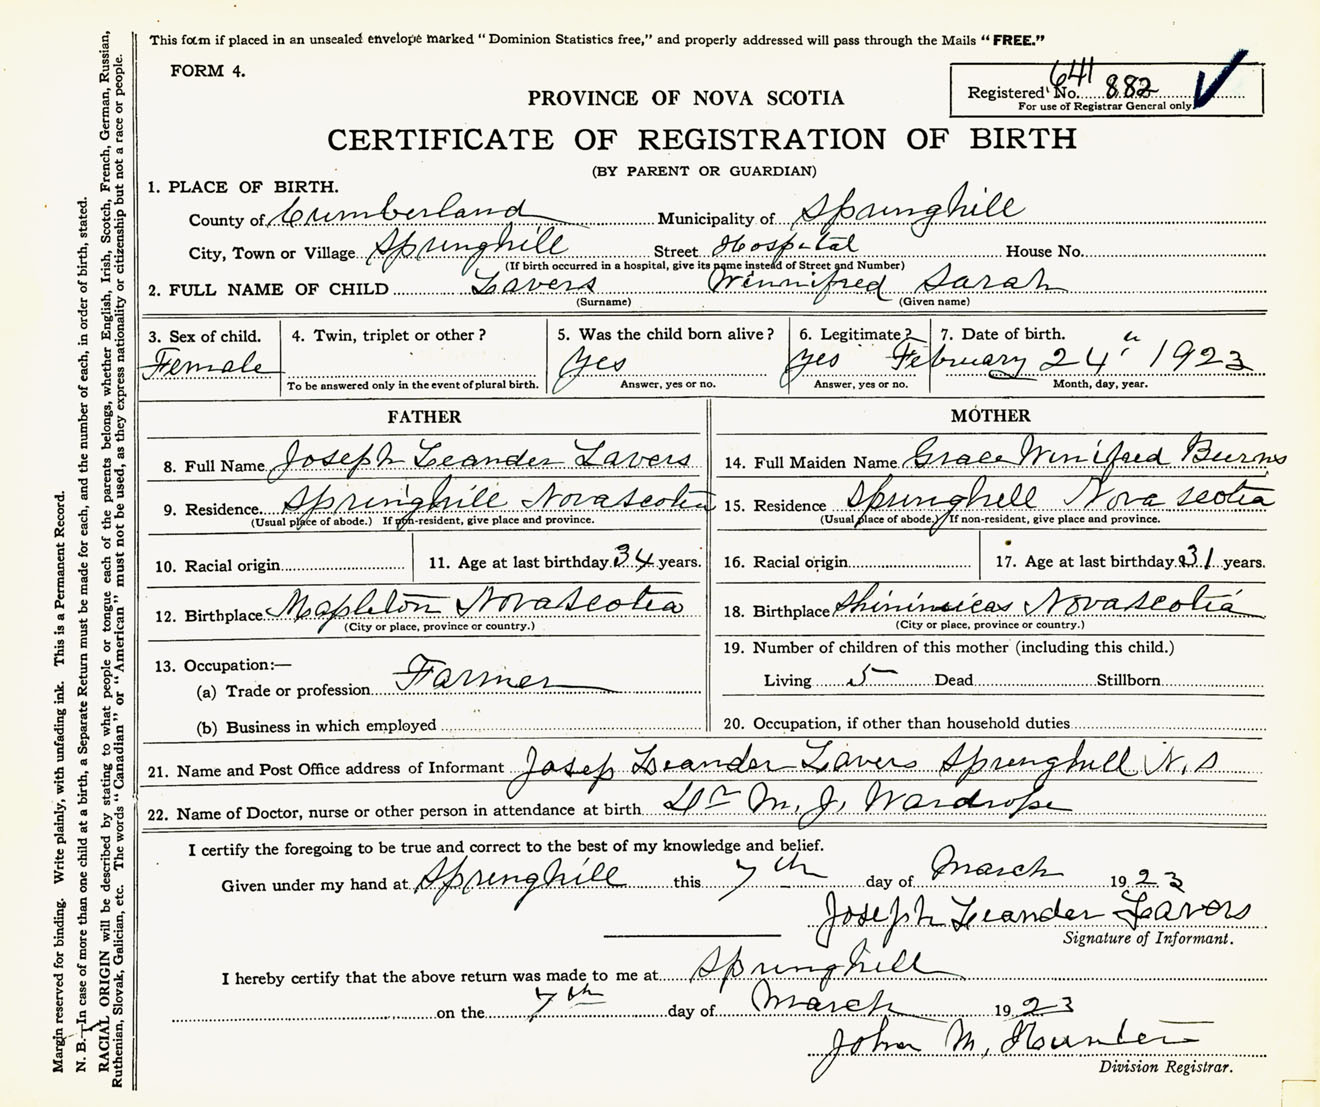 This form if placed in an unsealed envelope marked "Dominion Statistics free," and properly addressed will pass through the Mails "FREE."
FORM 4.
641
Registered No. 882
For use of Registrar General only
PROVINCE OF NOVA SCOTIA
CERTIFICATE OF REGISTRATION OF BIRTH
(BY PARENT OR GUARDIAN)
1. PLACE OF BIRTH.
County of Cumberland Municipality of Springhill
City, Town or Village Springhill Street Hospital House No.
(If birth occurred in a hospital, give its name instead of Street and Number)
2. FULL NAME OF CHILD Lavers Winnifred Sarah
(Surname) (Given name)
3. Sex of child. 4. Twin, triplet or other? 5. Was the child born alive? 6. Legitimate? 7. Date of birth.
Female yes yes February 24" 1923
To be answered only in the event of plural birth. Answer, yes or no. Answer, yes or no. Month, day, year.
FATHER
8. Full Name Joseph Leander Lavers
9. Residence. Springhill Nova Scotia
(Usual place of abode.) If non-resident, give place and province.
10. Racial origin 11. Age at last birthday 34 years.
12. Birthplace Mapleton Nova Scotia
(City or place, province or country.)
13. Occupation:—
(a) Trade or profession Farmer
(b) Business in which employed
MOTHER
14. Full Maiden Name Grace Winifred Burns
15. Residence Springhill Nova Scotia
(Usual place of abode.) If non-resident, give place and province.
16. Racial origin 17. Age at last birthday 31 years.
18. Birthplace Nova Scotia
(City or place, province or country.)
19. Number of children of this mother (including this child.)
Living 5 Dead Stillborn
20. Occupation, if other than household duties
21. Name and Post Office address of Informant Josep Leander Lavers Springhill N.S
22. Name of Doctor, nurse or other person in attendance at birth Dr M. J. Wardrope
I certify the foregoing to be true and correct to the best of my knowledge and belief.
Given under my hand at Springhill this 7th day of March 1923
Joseph Leander Lavers
Signature of Informant.
I hereby certify that the above return was made to me at Springhill
on the 7th day of March 1923
John M. Hunter
Division Registrar.
Margin reserved for binding. Write plainly, with unfading ink. This is a Permanent Record.
N. B.—In case of more than one child at a birth, a Separate Return must be made for each, and the number of each, in order of birth, stated.
RACIAL ORIGIN will be described by stating to what people or tongue each of the parents belongs, whether English, Irish, Scotch, French, German, Russian,
Ruthenian, Slovak, Galician, etc. The words "Canadian" or "American" must not be used, as they express nationality or citizenship but not a race or people.